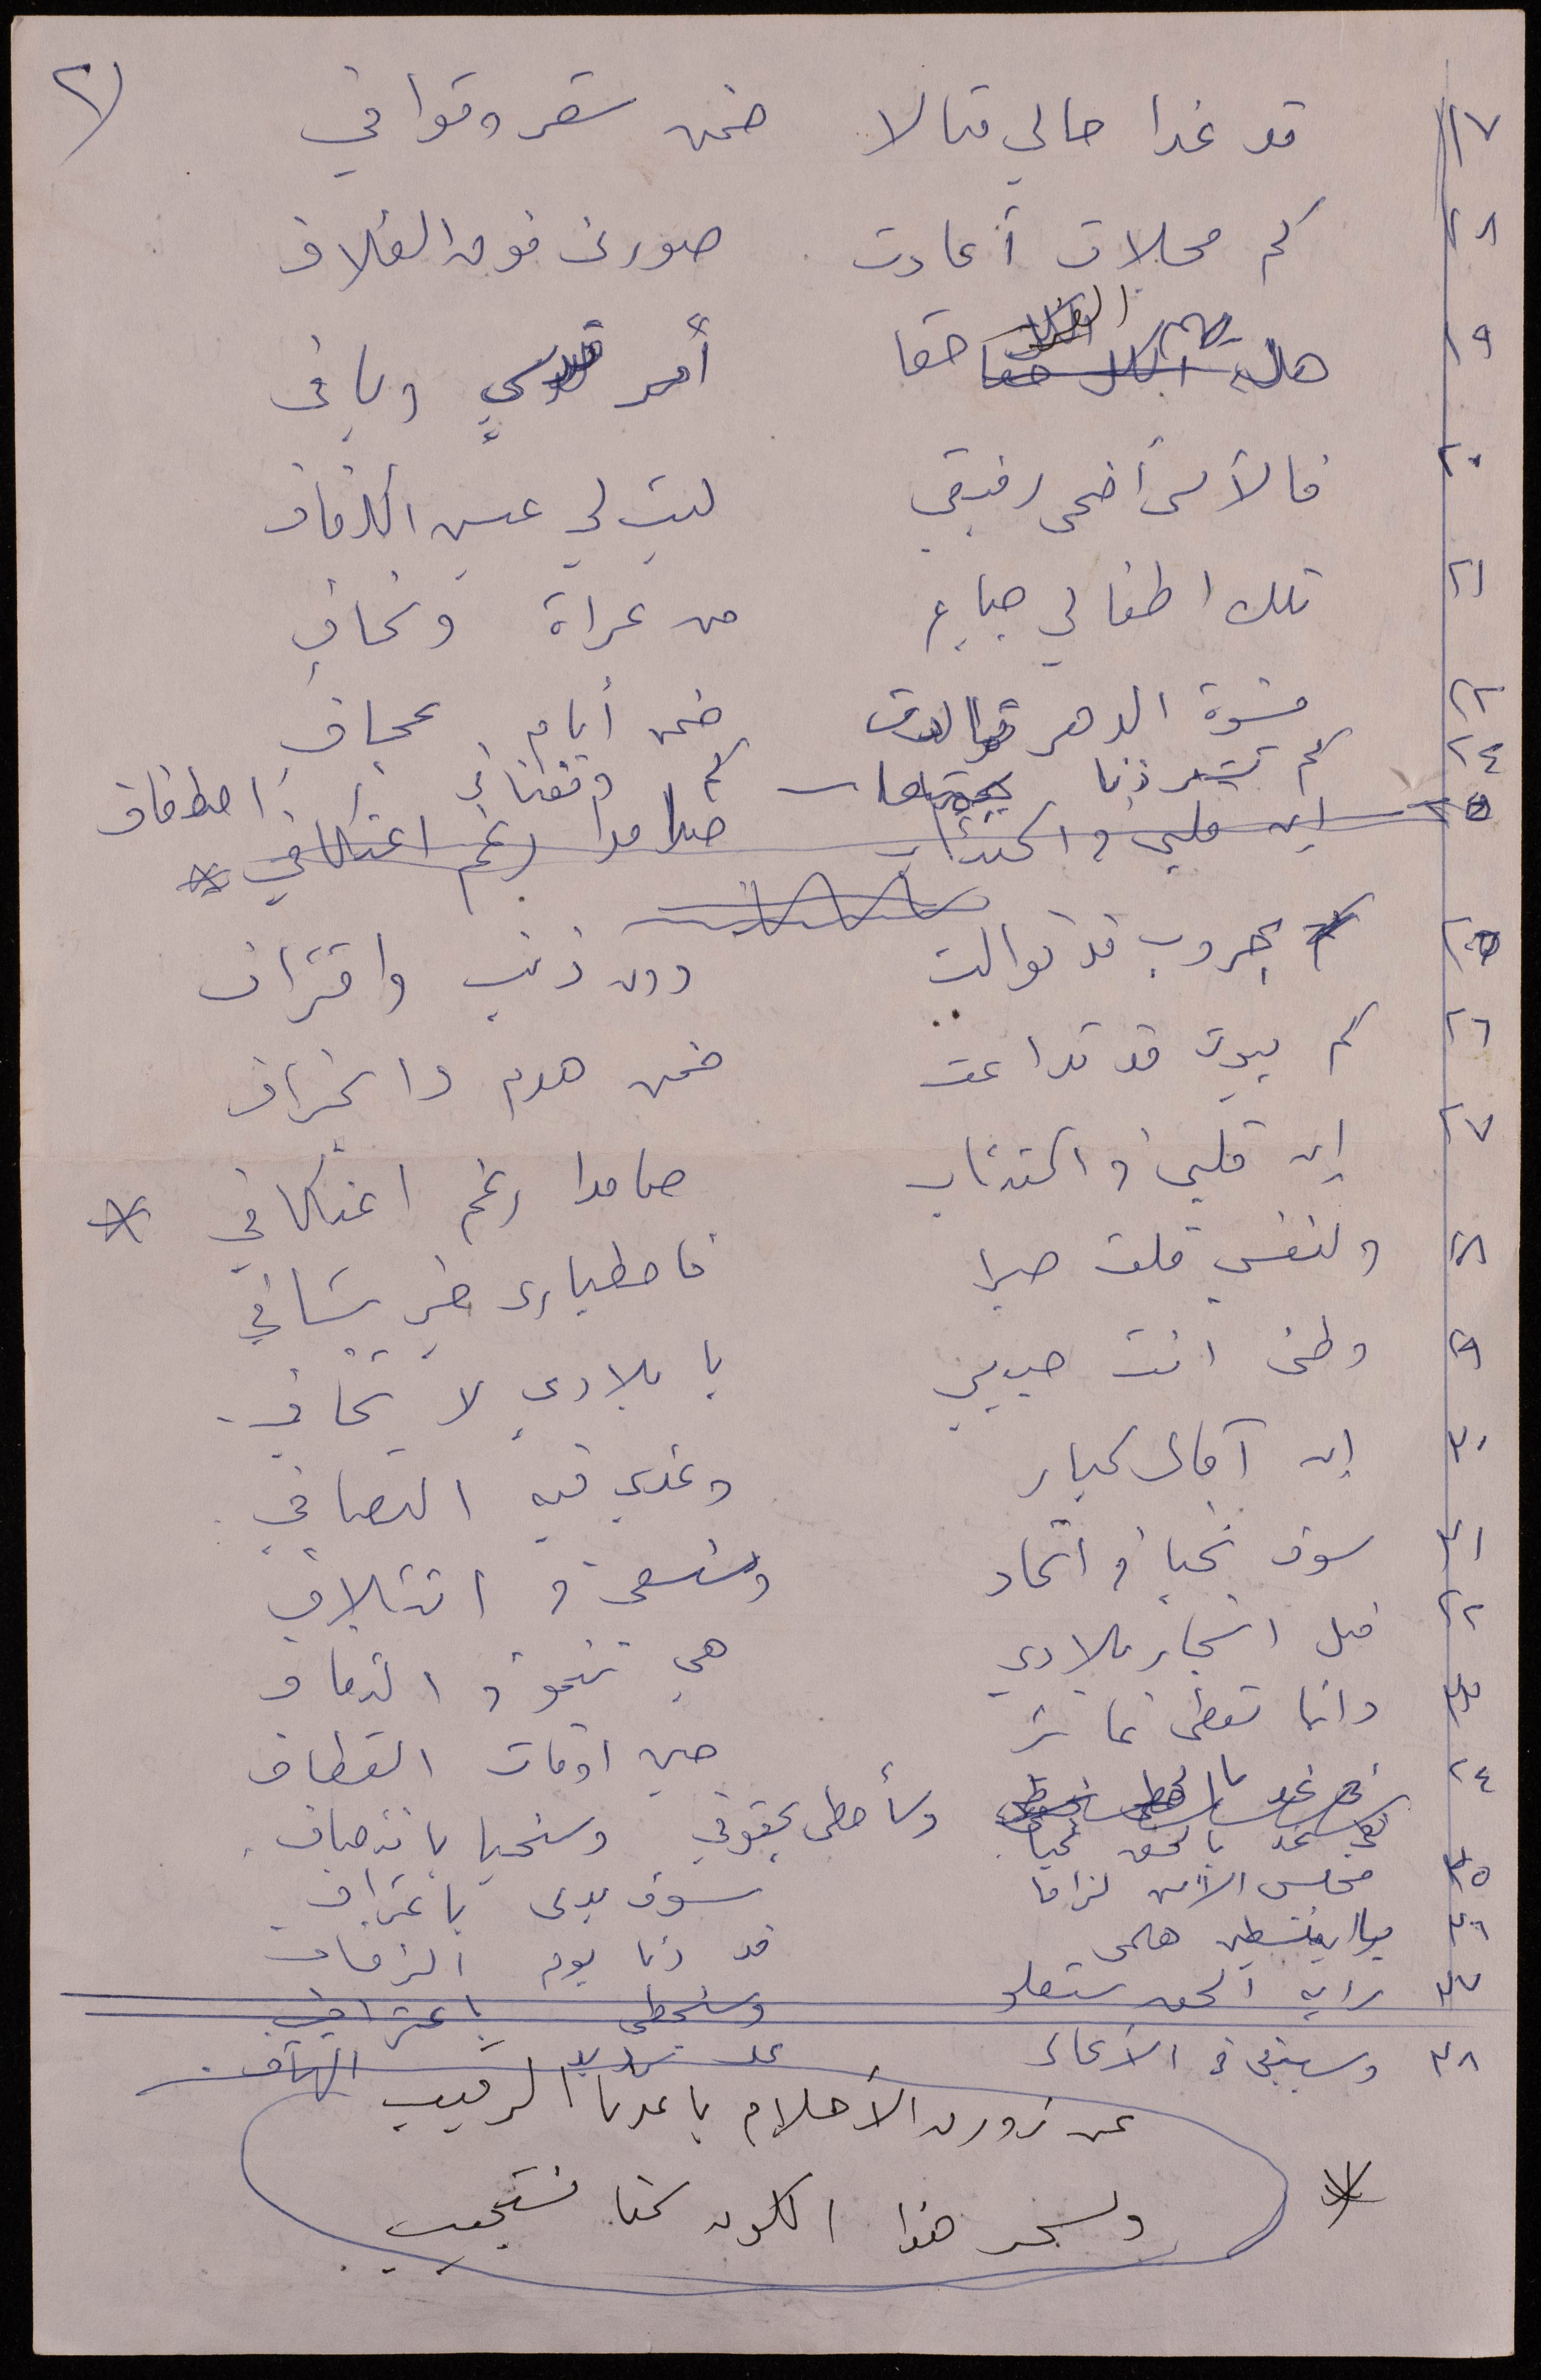 ٢
١٧ قد غدا حالي مثالا ضمن شعر وقوافي
١٨ كم مجلات أعادت صورتي فوق الغلاف
١٩ هل حقا أمر قدسي وباقي
٢٠ فالأسى أضحى رفيقي ليت لي عيش الكفاف
٢١ تلك اطفالي جياع من عراة ونحاف
٢٢ قسوة الدهر توالت ضمن أيام عجاف
٢٤ كم تشرذنا كم وقفنا في اصطفاف
٢٥ إن قلبي في اكتئاب صامدا رغم اعتكافي *
٢٥ بحروب قد توالت دون ذنب واقتراف
٢٦ كم بيوت قد تداعت ضمن هدم وانجراف
٢٧ إن قلبي في اكتئاب صامدا رغم اعتكافي *
٢٨ ولنفسي قلت صبرا فاصطباري خير شافي
٢٩ وطني انت حبيبي يا بلادي لا تخافي
٣٠ إن آمالي كبار وغدي فيه التصافي
٣١ سوف نحيا في اتحاد وسنسعى في ائتلاف
٣٢ مثل اشجار بلادي هي تنمو في التفاف
٣٣ دائما تعطي ثمارا حين اوقات القطاف
٣٤ وسأحظى بحقوقي وسنحيا بانتصاف
٣٥ مجلس الأمن لزاما سوف يدلي باعتراف
٣٦ يا فلسطين هلمي قد دنا يوم الزفاف
٣٧ راية الحق ستعلو وسنحظى باعتراف
٣٨ وسنبقى في الأعالي عند ترديد الهتاف
عن زورق الأحلام باعدنا الرقيب
* ولسحر هذا الكون كنا نستجيب